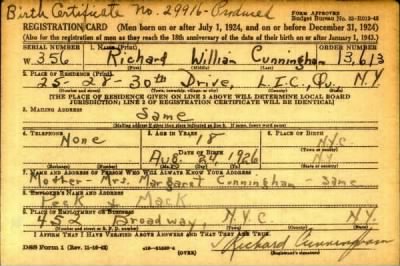 Birth Certificate No. 29916 - Produced
FORM APPROVED
REGISTRATION CARD—(Men born on or after July 1, 1924, and on or before December 31, 1924)
(Also for the registration of men as they reach the 18th anniversary of the date of their birth on or after January 1, 1943.)
SERIAL NUMBER 1. NAME (Print) ORDER NUMBER
W356 Richard William Cunningham 13,613
2. PLACE OF RESIDENCE (Print)
25-28-30th Drive, L.I.C., Qu. N.Y.
[THE PLACE OF RESIDENCE GIVEN ON LINE 2 ABOVE WILL DETERMINE LOCAL BOARD
JURISDICTION; LINE 2 OF REGISTRATION CERTIFICATE WILL BE IDENTICAL]
3. MAILING ADDRESS
Same
4. TELEPHONE 5. AGE IN YEARS 6. PLACE OF BIRTH
None 18 N.Y.C.
DATE OF BIRTH
Aug. 24, 1926 N.Y.
7. NAME AND ADDRESS OF PERSON WHO WILL ALWAYS KNOW YOUR ADDRESS
Mother - Mrs. Margaret Cunningham - Same
8. EMPLOYER'S NAME AND ADDRESS
Peck & Mack
9. PLACE OF EMPLOYMENT OR BUSINESS
452 Broadway N.Y.C. N.Y.
I AFFIRM THAT I HAVE VERIFIED ABOVE ANSWERS AND THAT THEY ARE TRUE.
DSS Form 1 (OVER) Richard Cunningham